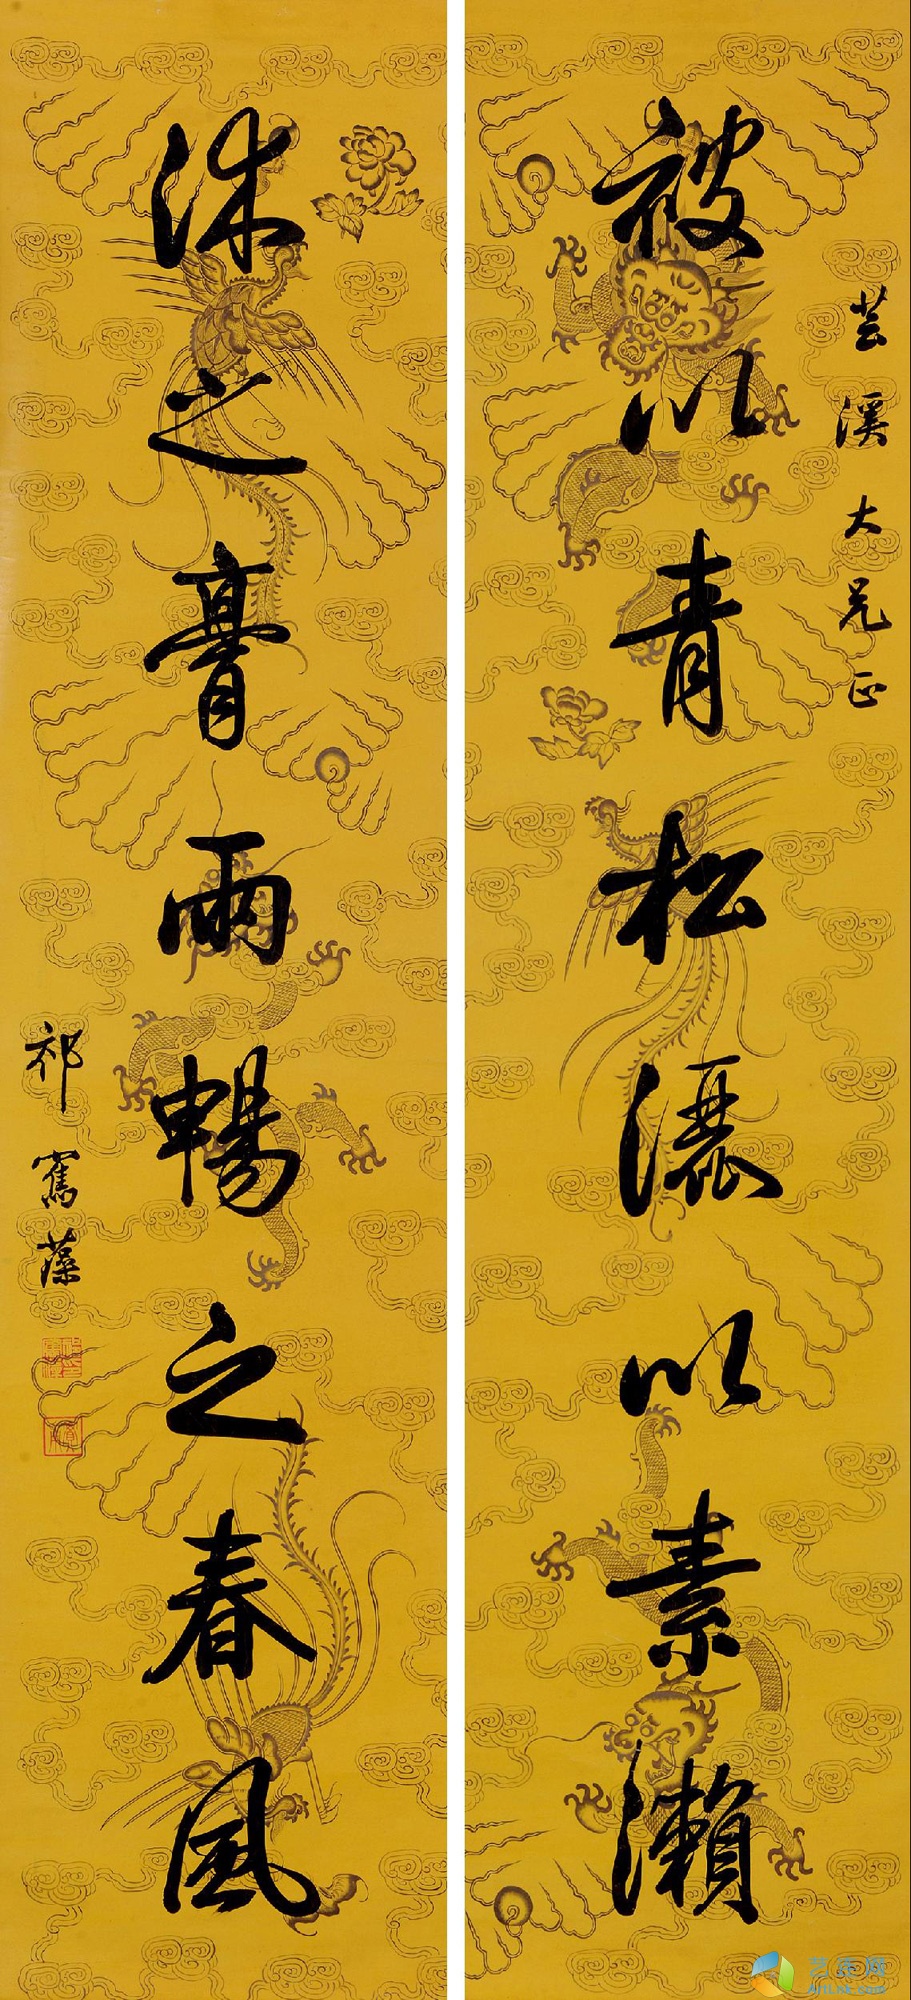 芸溪大兄正
被以青松灑以素瀨
沐之膏雨暢之春風
祁寯藻
艺连网